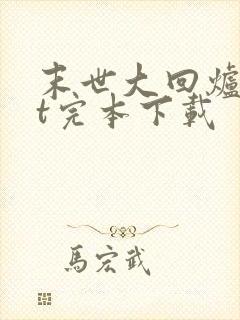 末世大回爐
t完本下載
馬宏武